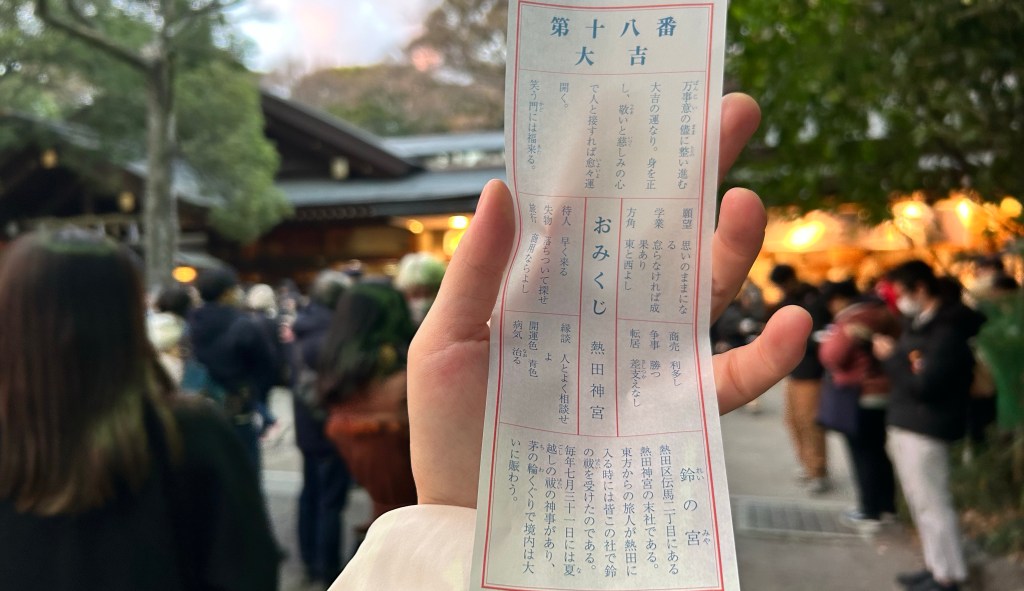 第十八番
大吉
万事意の儘に整い進む
大吉の運なり。身を正
し、敬いと慈しみの心
で人と接すれば愈々運
開く。
笑う門には福来る。
願望 思いのままにな
る
学業 怠らなければ成
果あり
方角 東と西よし
おみくじ 熱田神宮
待人 早く来る
失物 落ちついて探せ
商売 利多し
争事 勝つ
転居 差支えなし
縁談 人とよく相談せ
よ
開運色 青色
病気 治る
鈴の宮
熱田区伝馬二丁目にある
熱田神宮の末社である。
東方からの旅人が熱田に
入る時には皆この社で鈴
の祓を受けたのである。
毎年七月三十一日には夏
越しの祓の神事があり、
茅の輪くぐりで境内は大
いに賑わう。